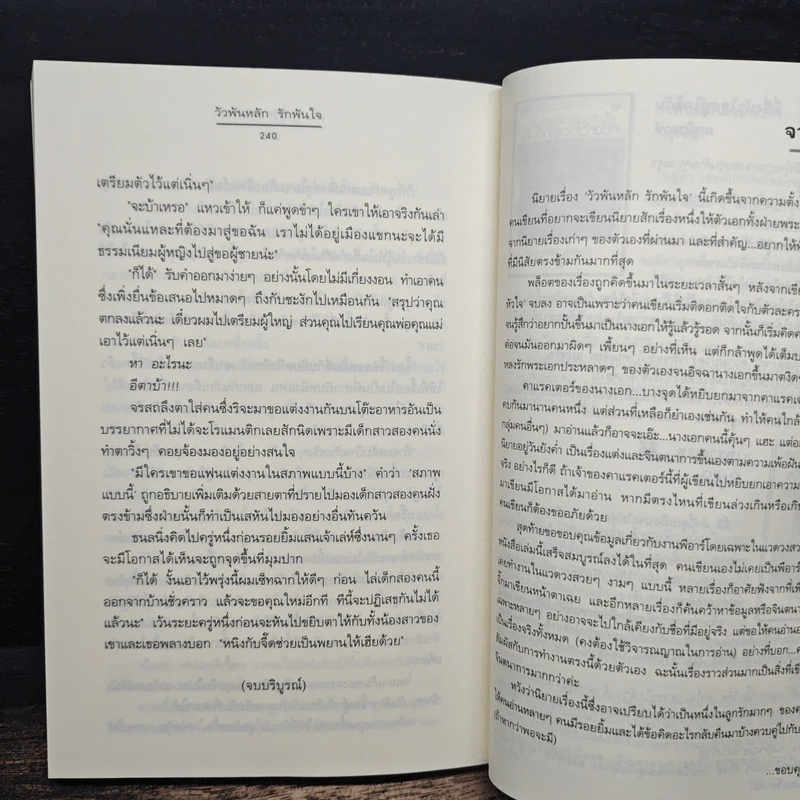 วัวพันหลัก รักพันใจ
240
เตรียมตัวไว้แต่เนิ่นๆ"
"จะบ้าเหรอ" แหวเข้าให้ ก็แค่พูดขำๆ ใครเขาให้เอาจริงกันเล่า
"คุณนั่นแหละที่ต้องมาสู่ขอฉัน เราไม่ได้อยู่เมืองแขกนะจะได้มี
ธรรมเนียมผู้หญิงไปสู่ขอผู้ชายน่ะ"
"ก็ได้" รับคำออกมาง่ายๆ อย่างนั้นโดยไม่มีเกี่ยงงอน ทำเอาคน
ซึ่งเพิ่งยื่นข้อเสนอไปหมาดๆ ถึงกับชะงักไปเหมือนกัน "สรุปว่าคุณ
ตกลงแล้วนะ เดี๋ยวผมไปเตรียมผู้ใหญ่ ส่วนคุณไปเรียนคุณพ่อคุณแม่
เอาไว้แต่เนิ่นๆ เลย"
หา อะไรนะ
อีตาบ้า!!!
จรสถลึงตาใส่คนซึ่งริจะมาขอแต่งงานกันบนโต๊ะอาหารอันเป็น
บรรยากาศที่ไม่ได้จะโรแมนติกเลยสักนิดเพราะมีเด็กสาวสองคนนั่ง
ทำตาวิ้งๆ คอยจ้องมองอยู่อย่างสนใจ
"มีใครเขาขอแฟนแต่งงานในสภาพแบบนี้บ้าง" คำว่า 'สภาพ
แบบนี้' ถูกอธิบายเพิ่มเติมด้วยสายตาที่ปรายไปมองเด็กสาวสองคนฝั่ง
ตรงข้ามซึ่งฝ่ายนั้นก็ทำเป็นเสหันไปมองอย่างอื่นทันควัน
ธนลนิ่งคิดไปครู่หนึ่งก่อนรอยยิ้มแสนเจ้าเล่ห์ซึ่งนานๆ ครั้งเธอ
จะมีโอกาสได้เห็นจะถูกจุดขึ้นที่มุมปาก
"ก็ได้ งั้นเอาไว้พรุ่งนี้ผมเซ็ทฉากให้ดีๆ ก่อน ไล่เด็กสองคนนี้
ออกจากบ้านชั่วคราว แล้วจะขอคุณใหม่อีกที ทีนี้จะปฏิเสธกันไม่ได้
แล้วนะ" เว้นระยะครู่หนึ่งก่อนจะหันไปขยิบตาให้กับทั้งน้องสาวของ
เขาและเธอพลางบอก "หนิงกับจี๊ดช่วยเป็นพยานให้เฮียด้วย"
(จบบริบูรณ์)
นิยายเรื่อง 'วัวพันหลัก รักพันใจ' นี้เกิดขึ้นจากความตั้ง
คนเขียนที่อยากจะเขียนนิยายสักเรื่องหนึ่งให้ตัวเอกทั้งฝ่ายพระ
จากนิยายเรื่องเก่าๆ ของตัวเองที่ผ่านมา และที่สำคัญ...อยากให้พ
ที่มีนิสัยตรงข้ามกันมากที่สุด
พล็อตของเรื่องถูกคิดขึ้นมาในระยะเวลาสั้นๆ หลังจากเขีย
หัวใจ' จบลง อาจเป็นเพราะว่าคนเขียนเริ่มติดอกติดใจกับตัวละคร
จนรู้สึกว่าอยากปั้นขึ้นมาเป็นนางเอกให้รู้แล้วรู้รอด จากนั้นก็เริ่มคิด
ต่อจนมันออกมาผิดๆ เพี้ยนๆ อย่างที่เห็น แต่ก็กล้าพูดได้เต็ม
หลงรักพระเอกประหลาดๆ ของตัวเองจนอิจฉานางเอกขึ้นมาตงิด
คาแรคเตอร์ของนางเอก...บางจุดได้หยิบยกมาจากคาแรคเต
คบกันมานานคนหนึ่ง แต่ส่วนที่เหลือก็ยำเองเช่นกัน ทำให้คนใกล้
กลุ่มคนอื่นๆ) มาอ่านแล้วก็อาจจะเอ๊ะ...นางเอกคนนี้คุ้นๆ แฮะ แต่
นิยายอยู่วันยังค่ำ เป็นเรื่องแต่งและจินตนาการขึ้นเองตามความเพ้อฝัน
จริง อย่างไรก็ดี ถ้าเจ้าของคาแรคเตอร์นี้ที่ผู้เขียนไปหยิบยกเอาความ
มาเขียนมีโอกาสได้มาอ่าน หากมีตรงไหนที่เขียนล่วงเกินหรือเกิน
คนเขียนก็ต้องขออภัยด้วย
สุดท้ายขอขอบคุณข้อมูลเกี่ยวกับงานพีอาร์โดยเฉพาะในแวดวงสวย
หนังสือเล่มนี้เสร็จสมบูรณ์ลงได้ในที่สุด คนเขียนเองไม่เคยเป็นพีอาร์
เคยทำงานในแวดวงสวยๆ งามๆ แบบนี้ หลายเรื่องก็อาศัยฟังจากที่เพื่
จิ๊กมาเขียนหน้าตาเฉย และอีกหลายเรื่องก็ค้นคว้าหาข้อมูลหรือจินตนา
เฉพาะหลายๆ อย่างอาจจะไปใกล้เคียงกับชื่อที่มีอยู่จริง แต่ขอให้คนอ่าน
เป็นเรื่องจริงทั้งหมด (คงต้องใช้วิจารณญาณในการอ่าน) อย่างที่บอก...
สัมผัสกับการทำงานตรงนี้ด้วยตัวเอง ฉะนั้นเรื่องราวส่วนมากเป็นสิ่งที่เขี
จินตนาการมากกว่าค่ะ
หวังว่านิยายเรื่องนี้ซึ่งอาจเปรียบได้ว่าเป็นหนึ่งในลูกรักมากๆ ของ
ให้คนอ่านหลายๆ คนมีรอยยิ้มและได้ข้อคิดอะไรกลับคืนมาบ้างควบคู่ไปกับ
(ถ้าหากว่าพอจะมี)
...ขอบคุ